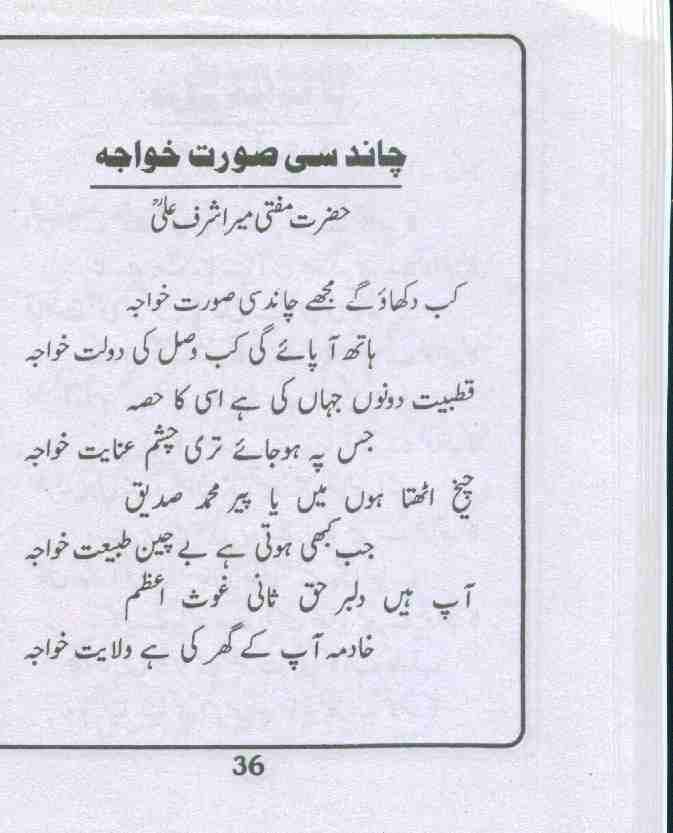 چاند سی صورت خواجہ
حضرت مفتی میر اشرف علیؒ
کب دکھاؤ گے مجھے چاند سی صورت خواجہ
ہاتھ آ پائے گی کب وصل کی دولت خواجہ
قطبیت دونوں جہاں کی ہے اسی کا حصہ
جس پہ ہوجائے تری چشم عنایت خواجہ
چیخ اٹھتا ہوں میں یا پیر محمد صدیق
جب کبھی ہوتی ہے بے چین طبیعت خواجہ
آپ ہیں دلبر حق ثانی غوث اعظم
خادمہ آپ کے گھر کی ہے ولایت خواجہ
36